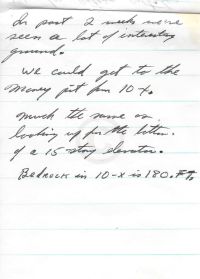 In past 2 weeks we've
seen a lot of interesting
ground.
We could get to the
money pit from 10-X.
much the same as
looking up from the bottom.
of a 15-story elevator.
Bedrock in 10-X is 180.FT.